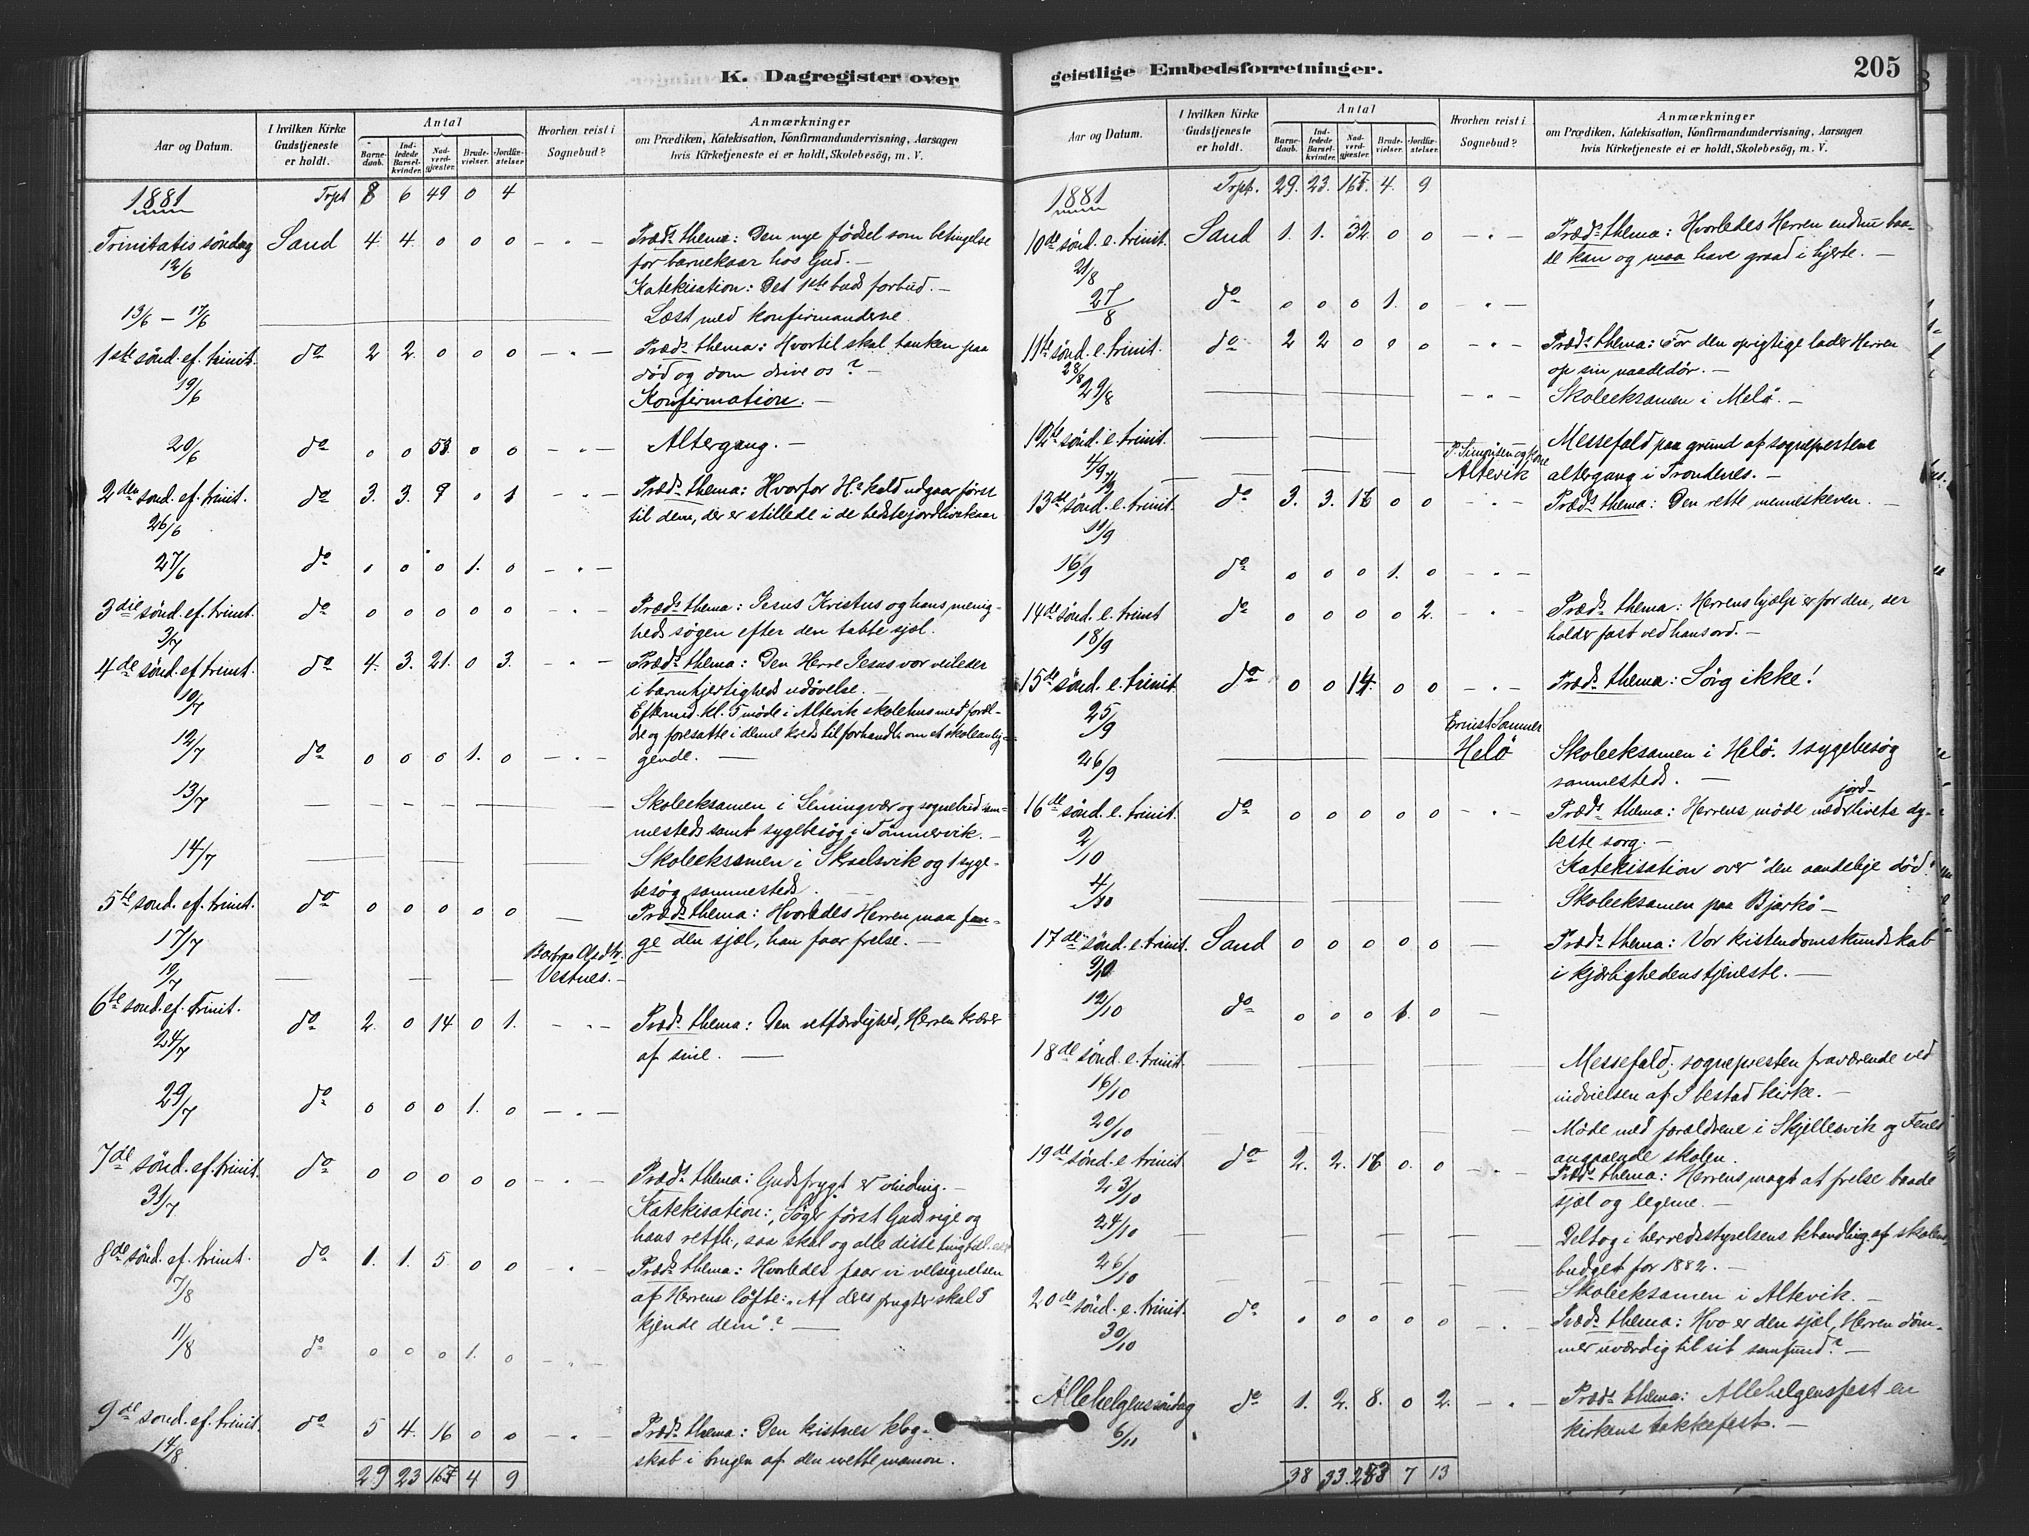 K. Dagregister over
Aar og Datum.
I hvilken Kirke Gudstjeneste er holdt.
Antal
Barnedaab.
Indledede Barselkvinder.
Nadverdgjester.
Brudevielser.
Jordfæstelser
Hvorhen reist i Sognebud?
Anmærkninger
om Prædiken, Katekisation, Konfirmandundervisning, Aarsagen
hvis Kirketjeneste ei er holdt, Skolebesøg, m. V.
1881 Trpt 8 6 49 0 4
Trinitatis söndag Sand 4 4. 0 0 0 Præds thema: Den nye födsel som betingelse
12/6 for barnekaar hos Gud. —
Katekisation: Det 1ste buds forbud. —
13/6 — 17/6 Læst med konfirmanderne.
1ste sönd. ef. trinit. do 2 2. 0 0 0 Præds thema: Hvortil skal tanken paa
19/6 död og dom drive os? —
Konfirmation. —
20/6 do 0 0 53 0 0 Altergang. —
2den sönd. ef. trinit. do 3. 3. 9 0 1 Præds thema: Hvorfor Hs kald udgaar först
26/6 til dem, der er stillede i de bedste jordlivskaar
27/6 do 0 0 0 1. 0
3die sönd. ef. trinit. do 0 0 0 0 0 Præds thema: Jesus Kristus og hans menig-
3/7 heds sögen efter den tabte sjæl.
4de sönd. ef. trinit. do 4. 3. 21. 0 3. Præds thema: Den Herre Jesus vor veileder
10/7 i barmhjertigheds udövelse. —
Eftermid. kl. 5 möde i Altevik skolehus med foræl-
dre og foresatte i denne kreds til forhandl. om et skoleanlig-
12/7 do 0 0 0 1. 0 gende. —
13/7 Skoleeksamen i Leningvær og sognebud sam-
mesteds samt sygebesög i Tömmervik. —
14/7 Skoleeksamen i Skraalsvik og 1 syge-
besög sammesteds. —
5te sönd. ef. trinit. do 0 0 0 0 0 Præds thema: Hvorledes Herren maa fan-
17/7 ge den sjæl, han faar frelse. —
19/7 Vestnes. —
6te sönd. ef. Trinit. do 2. 0 14 0 1. Præds thema: Den retfærdighed, Herren kræver
24/7 af sine. —
29/7 do 0 0 0 1. 0
7de sönd. ef. trinit. do 0 0 0 0 0 Præds thema: Gudsfrygt er vinding. —
31/7 Katekisation: „Söger först Guds rige og
hans retfr., saa skal og alle disse ting
8de sönd. ef. trinit. do 1. 1. 5. 0 0 Præds thema: Hvorledes faar vi velsignelsen
7/8 af Herrens löfte: „Af deres frugter skal I
kjende dem"? —
11/8 do 0 0 0 1. 0
9de sönd. ef. trinit. do 5 4. 16 0 0 Præds thema: Den kristnes klog-
14/8 skab i brugen af den urette mamon.
29 23 157 4 9
geistlige Embedsforretninger.
205
Aar og Datum.
I hvilken Kirke Gudstjeneste er holdt.
Antal
Barnedaab.
Indledede Barselkvinder.
Nadverdgjester.
Brudevielser.
Jordfæstelser.
Hvorhen reist i Sognebud?
Anmærkninger
om Prædiken, Katekisation, Konfirmandundervisning, Aarsagen
hvis Kirketjeneste ei er holdt, Skolebesøg, m. V.
1881 Trpt. 29. 23. 157. 4. 9
10de sönd. e. trinit. Sand 1. 1. 32. 0 0 Præds thema: Hvorledes Herren endnu baa-
21/8 de kan og maa have graad i hjerte. —
27/8 do 0 0 0 1. 0
11te sönd. e. trinit. do 2 2 0 0 0 Præds thema: For den oprigtige lader Herren
28/8 op sin naadedör. —
29/8 Skoleeksamen i Melö. —
12te sönd. e. trinit. Messefald paa grund af sogneprestens
4/9 altergang i Trondenes. —
7/9 P. Simonsen og kone Altevik
13de sönd. e. trinit. do 3. 3. 16 0 0 Præds thema: Den rette menneskeven. —
11/9
16/9 do 0 0 0 1. 0
14de sönd. e. trinit do 0 0 0 0 2. Præds thema: Herrens hjælp er for den, der
18/9 holder fast ved hans ord. —
15de sönd. e. trinit. do 0 0 14. 0 0 Præds thema: Sörg ikke!
25/9
26/9 Helö Skoleeksamen i Helö. 1 sygebesög
sammesteds. —
16de sönd. e. trinit. do 0 0 0 0 0 Præds thema: Herrens möde med jordlivets dy-
2/10 beste sorg. —
Katekisation over "den aandelige död."
4/10 Skoleeksamen paa Bjarkö —
17de sönd. e. trinit. Sand 0 0 0 0 0 Præds thema: Vor kristendomskundskab
9/10 i kjærlighedens tjeneste. —
12/10 do 0 0 0 1 0
18de sönd. e. trinit. Messefald; sognepresten fraværende ved
16/10 indvielsen af Ibestad kirke. —
20/10 Möde med forældrene i Skjellesvik og Fenes
angaaende skolen.
19de sönd. e. trinit do 2. 2. 16 0. 0 Præds thema: Herrens magt at frelse baade
23/10 sjæl og legeme. —
24/10 Deltog i herredsstyrelsens behandling af skolens
budget for 1882. —
26/10 Skoleeksamen i Altevik. —
20de sönd. e. trinit. do 0 0 0 0 0 Præds thema: Hvo er den sjæl, Herren döm-
30/10 mer uværdig til sit samfund? —
Allehelgenssöndag do 1. 2. 8. 0 2. Præds thema: Allehelgensfest en
6/11 kirkens takkefest. —
38 33. 243 7 13